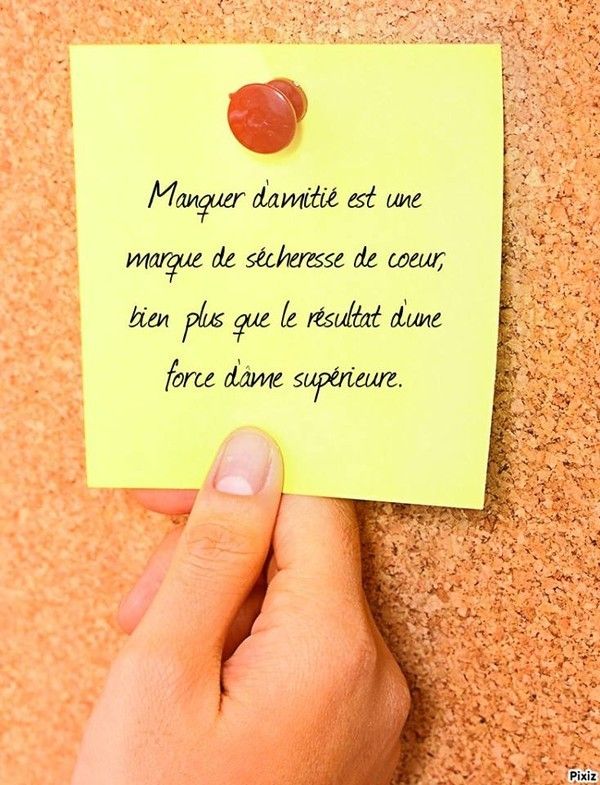 Manquer d'amitié est une
marque de sécheresse de coeur,
bien plus que le résultat d'une
force d'âme supérieure.
Pixiz